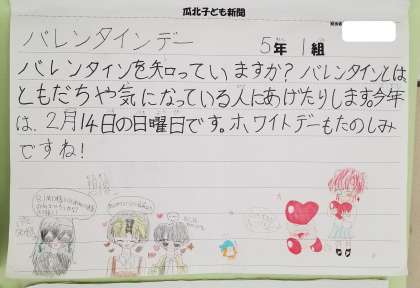 瓜北子ども新聞
バレンタインデー
5年 1組
バレンタインを知っていますか?バレンタインとは、
ともだちや気になっている人にあげたりします。今年
は、2月14日の日曜日です。ホワイトデーもたのしみ
ですね!